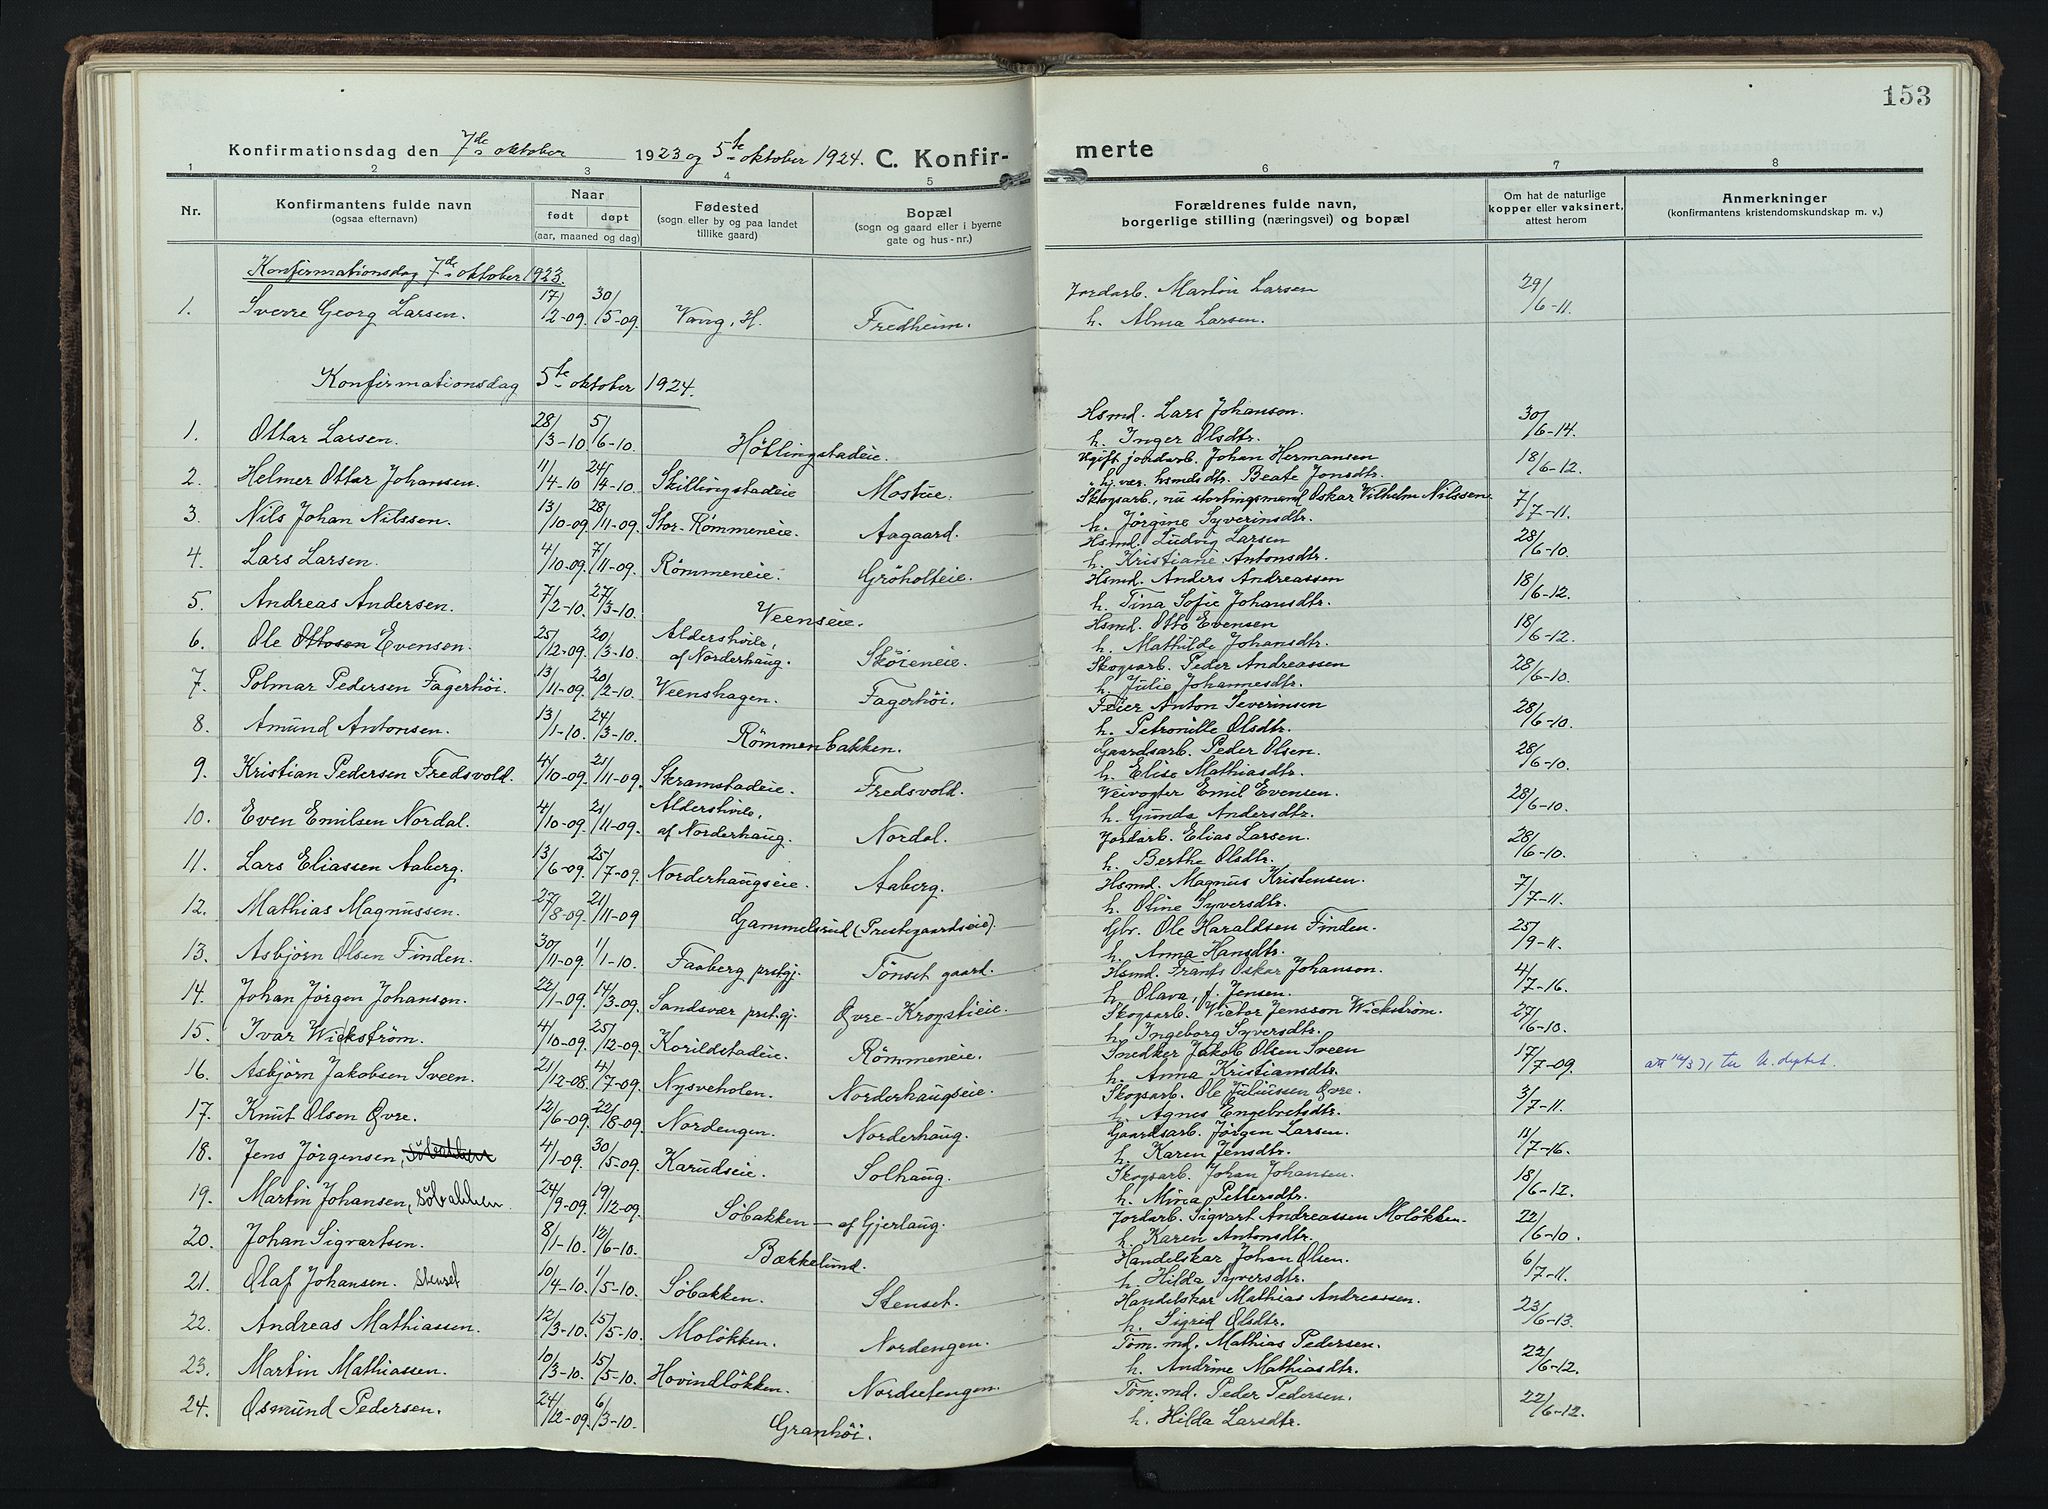 153
Konfirmationsdag den 7de oktober 1923 og 5te oktober 1924. C. Konfir-
merte
1 2 3 4 5 6 7 8
Nr.
Konfirmantens fulde navn
(ogsaa efternavn)
Naar
født døpt
(aar, maaned og dag)
Fødested
(sogn eller by og paa landet
tillike gaard)
Bopæl
(sogn og gaard eller i byerne
gate og hus-nr.)
Forældrenes fulde navn,
borgerlige stilling (næringsvei) og bopæl
Om hat de naturlige
kopper eller vaksinert,
attest herom
Anmerkninger
(konfirmantens kristendomskundskap m. v.)
Konfirmationsdag 7de oktober 1923.
1. Sverre Georg Larsen. 17/2-09. 30/5-09. Vang, H. Fredheim. Jordarb. Martin Larsen 29/6-11.
h. Alma Larsen.
Konfirmationsdag 5te oktober 1924.
1. Ottar Larsen. 28/3-10 5/6-10. Høtlingstadeie. Hsmd. Lars Johanson. 30/6-14.
h. Inger Olsdtr.
2. Helmer Ottar Johansen. 11/4-10 24/4-10. Skillingstadeie Mostue. Ugift jordarb. Johan Hermansen 18/6-12.
hsmdsdtr. Beate Jonsdtr.
3. Nils Johan Nilssen. 13/10-09. 28/11-09. Stor-Rømmeneie. Aagaard. Skogsarb., nu stortingsmand Oskar Wilhelm Nilssen. 7/7-11.
h. Jørgine Syverinsdtr.
4. Lars Larsen. 4/10-09. 7/11-09. Rømmeneie. Grøholteie. Hsmd. Ludvig Larsen 28/6-10.
h. Kristiane Antonsdtr.
5. Andreas Andersen. 7/2-10. 27/3-10. Veenseie. Hsmd. Anders Andreassen 18/6-12.
h. Tina Sofie Johansdtr.
6. Ole Ottosen Evensen. 25/12-09. 20/3-10. Aldershvile, af Norderhaug. Skøieneie. Hsmd. Otto Evensen 18/6-12.
h. Mathilde Johansdtr.
7. Polmar Pedersen Fagerhøi. 13/11-09. 20/2-10. Veenshagen. Fagerhøi. Skogsarb. Peder Andreassen 28/6-10.
h. Julie Johannesdtr.
8. Amund Antonsen. 13/1-10. 24/3-10. Rømmenbakken. Feier Anton Severinsen 28/6-10.
h. Petronille Olsdtr.
9. Kristian Pedersen Fredsvold. 4/10-09. 21/11-09. Skramstadeie. Fredsvold. Gaardsarb. Peder Olsen. 28/6-10.
h. Elise Mathiasdtr.
10. Even Emilsen Nordal. 4/10-09. 21/11-09. Aldershvile, af Norderhaug. Nordal. Veivogter Emil Evensen. 28/6-10.
h. Gunda Andersdtr.
11. Lars Eliassen Aaberg. 13/6-09. 25/7-09. Norderhaugseie. Aaberg. Jordarb. Elias Larsen. 28/6-10.
h. Berthe Olsdtr.
12. Mathias Magnussen. 27/8-09. 21/11-09 Gammelsrud (Prestegaardseie). Hsmd. Magnus Kristensen. 7/7-11.
h. Oline Syversdtr.
13. Asbjørn Olsen Finden. 30/11-09. 1/1-10. Faaberg prstgj. Tønset gaard. Gbr. Ole Haraldsen Finden. 25/9-11.
h. Anna Hansdtr.
14. Johan Jørgen Johanson. 22/1-09. 14/3-09. Sandsvær prst.gj. Øvre-Krogstieie. Hsmd. Frants Oskar Johanson. 4/7-16.
h. Olava, f. Jensen.
15. Ivar Wickstrøm. 4/10-09. 25/12-09. Korildstadeie. Rømmeneie. Skogsarb. Victor Jensson Wickstrøm. 27/6-10.
h. Ingeborg Syversdtr.
16. Asbjørn Jakobsen Sveen. 21/12-08. 4/7-09. Nysveholen. Norderhaugseie. Snedker Jakob Olsen Sveen 17/7-09.
h. Anna Kristiansdtr.
17. Knut Olsen Øvre. 12/6-09. 22/8-09. Nordengen. Norderhaug. Skogsarb. Ole Juliussen Øvre. 3/7-11.
h. Agnes Engebretsdtr.
18. Jens Jørgensen, Søbakken 4/1-09. 30/5-09. Karudseie. Solhaug. Gaardsarb. Jørgen Larsen. 11/7-16.
h. Karen Jensdtr.
19. Martin Johansen, Søbakken. 24/9-09. 19/12-09. Søbakken — af Gjerlaug. Skogsarb. Johan Johansen. 18/6-12.
h. Mina Pettersdtr.
20. Johan Sigvartsen. 8/1-10. 12/6-10. Bækkelund. Jordarb. Sigvart Andreassen Moløkken. 22/6-10.
h. Karen Antonsdtr.
21. Olaf Johansen. Stenset 10/4-10. 1/5-10. Søbakken. Stenset. Handelskar Johan Olsen. 6/7-11.
h. Hilda Syversdtr.
22. Andreas Mathiassen. 12/3-10. 15/5-10. Moløkken. Nordengen. Handelskar Mathias Andreassen. 23/6-13.
h. Sigrid Olsdtr.
23. Martin Mathiassen. 10/3-10. 15/5-10. Hovindløkken. Nordsetengen. Tøm.md. Mathias Pedersen. 22/6-12.
h. Andrine Mathiasdtr.
24. Osmund Pedersen. 24/12-09. 6/3-10. Granhøi. Tøm.md. Peder Pedersen. 22/6-12.
h. Hilda Larsdtr.